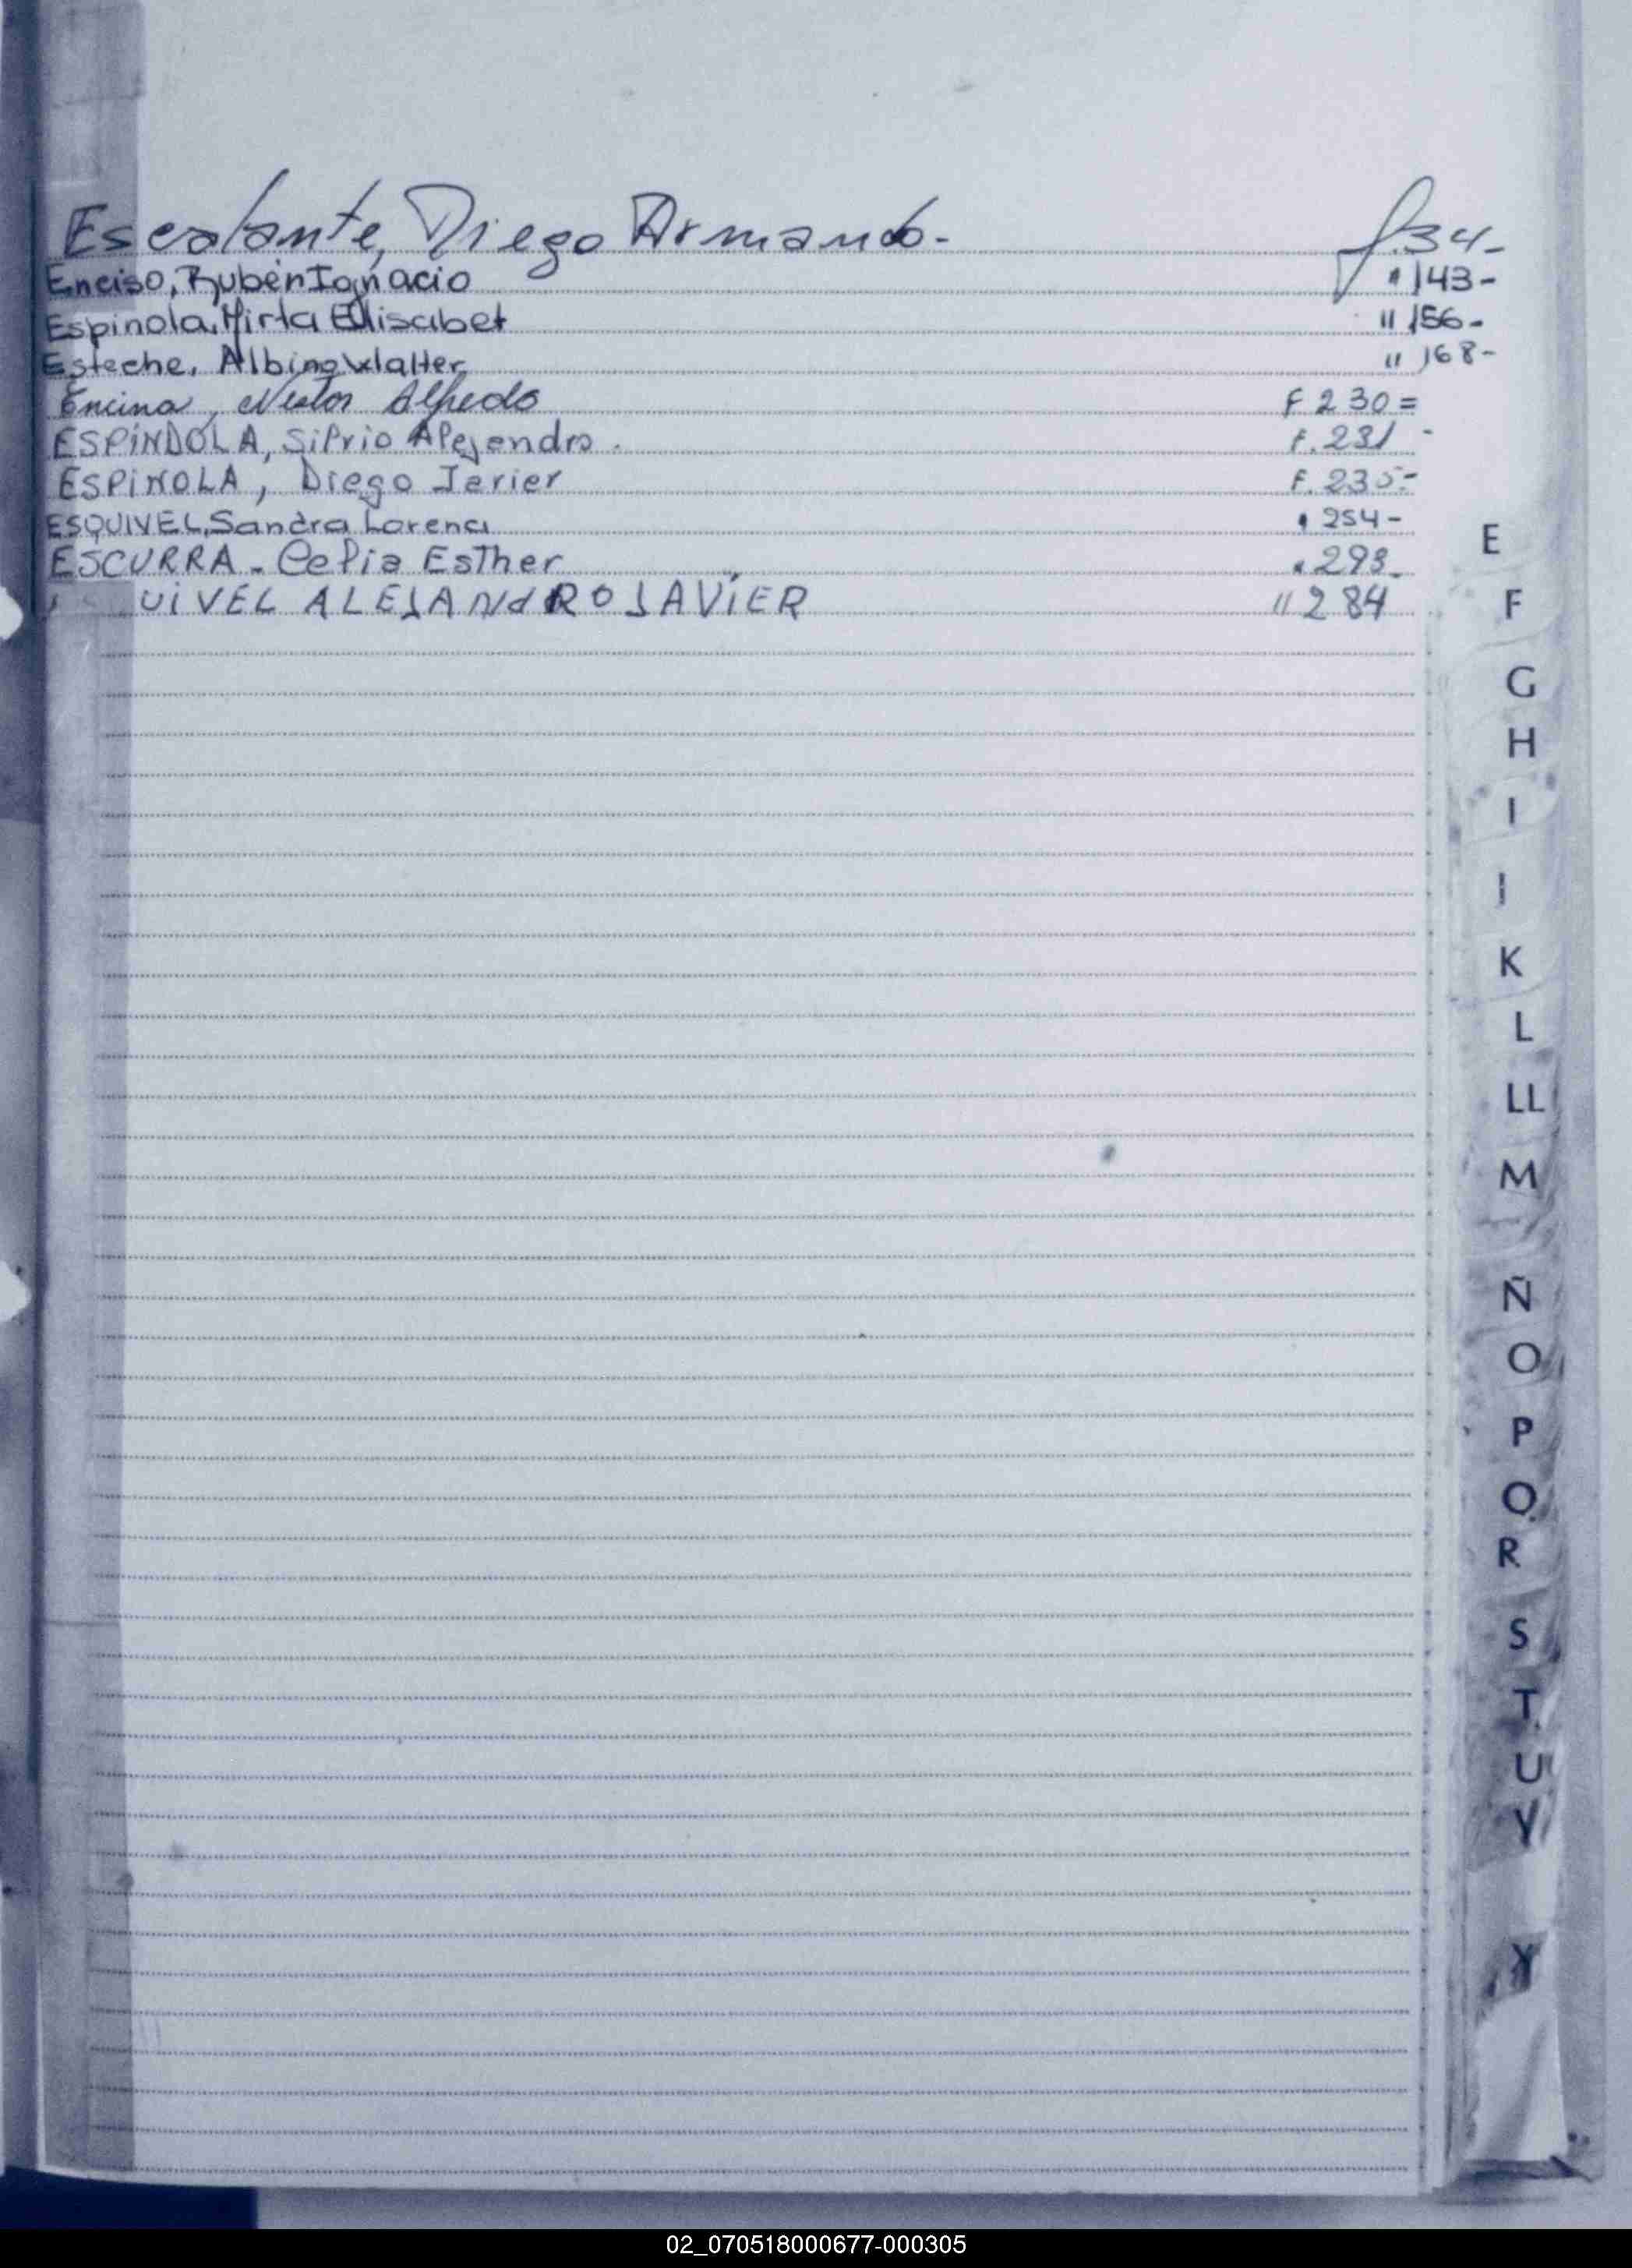 Escalante, Diego Armando- f.34-
Enciso, Rubén Ignacio " 143-
Espinola, Mirta Elisabet " 156-
Esteche, Albino Walter " 168-
Encina, Nestor Alfredo F 230=
ESPÍNDOLA, Silvio Alejandro. F. 231-
ESPINOLA, Diego Javier F. 235-
ESQUIVEL, Sandra Lorena " 254-
ESCURRA - Celia Esther " 293-
UIVEL ALEJANdRO JAVIER " 284
E
F
G
H
I
J
K
L
LL
M
Ñ
O
P
Q
R
S
T
U
V
Y
02_070518000677-000305